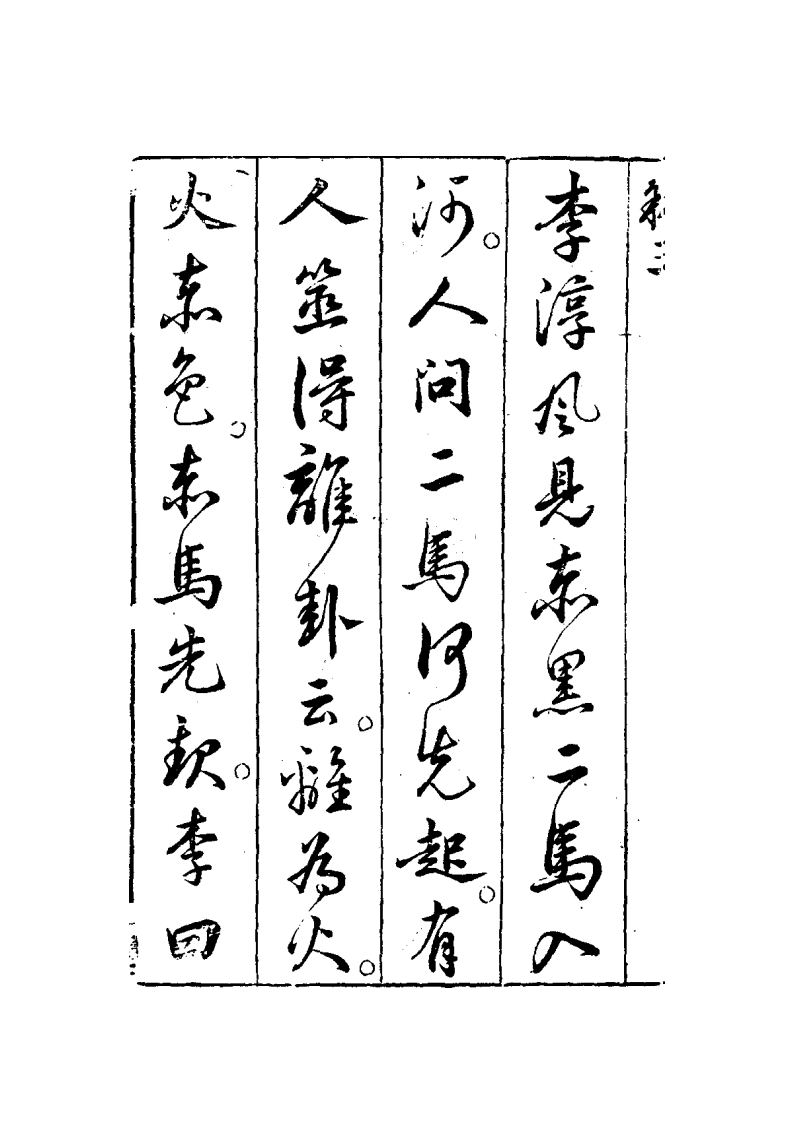 李淳風見赤黑二馬入
河。人問二馬何先起。有
人筮得離卦云。離為火。
火赤色。赤馬先起。李曰